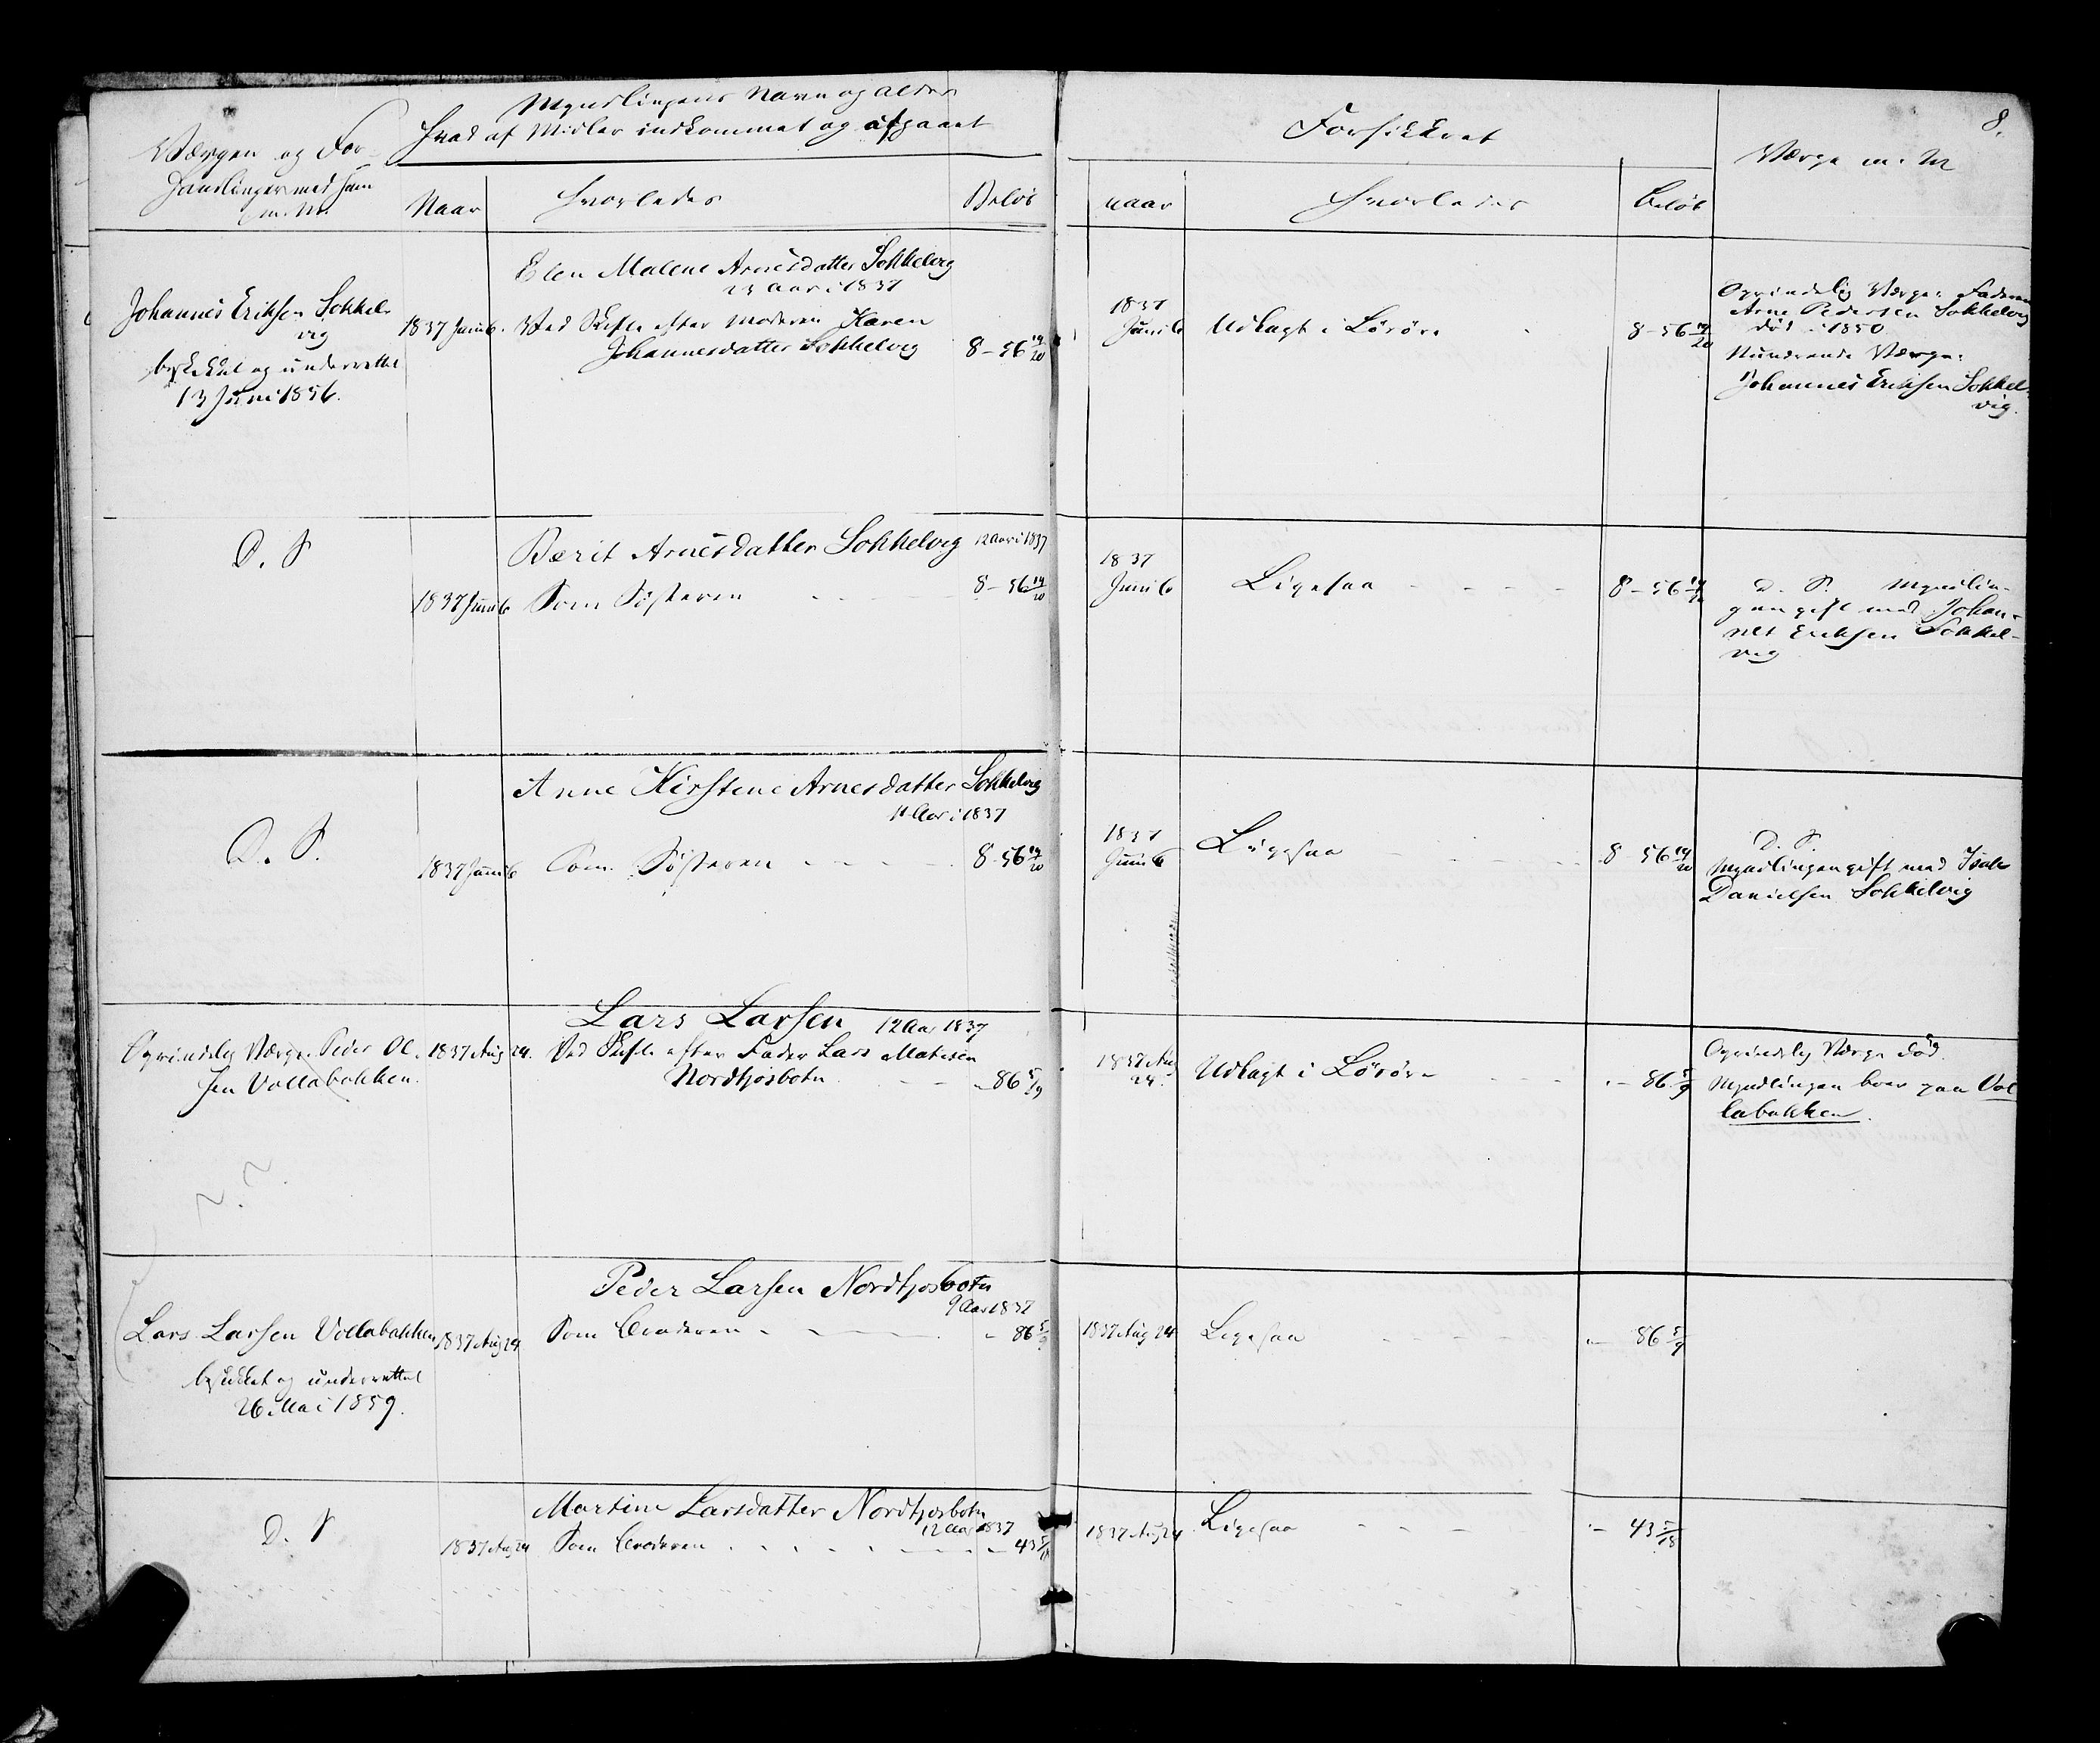 8.
Værgen og For-
handlinger med ham
m. M.
Myndlingens Navn og Alder
Hvad af Midler indkommet og afgaaet
Naar
Hvorledes
Beløb
Forsikkret
naar
Hvorledes
Beløb
Værge m. M
Johannes Eriksen Sokkel-
vig
beskikket og underrettet
13 Juni 1856.
Elen Malene Arnesdatter Sokkelvig
23 Aar i 1837
1837 Juni 6. Ved Skifte efter Moderen Karen
Johannesdatter Sokkelvig 8-56 19/20
1837
Juni 6 Udlagt i Løsøre 8-56 19/20
Oprindelig Værge: Faderen
Arne Pedersen Sokkelvig
død i 1850.
Nuværende Værge:
Johannes Eriksen Sokkel-
vig.
D. S
Berit Arnesdatter Sokkelvig 12 Aar i 1837
1837 Juni 6 Som Søsteren 8-56 19/20
1837
Juni 6 Ligesaa 8-56 19/20
D. S. Myndlin-
gen gift med Johan-
nes Eriksen Sokkel-
vig
D. S.
Anne Kirstene Arnesdatter Sokkelvig
11 Aar i 1837
1837 Juni 6 Som Søsteren 8-56 19/20
1837
Juni 6 Ligesaa 8-56 19/20
D. S.
Myndlingen gift med Isak
Danielsen Sokkelvig
Oprindelig Værge Peder Ol-
sen Vollabakken.
Lars Larsen 12 Aar 1837
1837 Aug 24. Ved Skifte efter Fader Lars Matisen
Nordkjosbotn - 86 5/9
1837 Aug
24. Udlagt i Løsøre - 86 5/9
Oprindelig Værge død.
Myndlingen boer paa Vol
labakken.
Lars Larsen Vollabakken
beskikket og underrettet
26 Mai 1859.
Peder Larsen Nordkjosbotn
9 Aar 1837
1837 Aug 24 Som Broderen - 86 5/9
1837 Aug 24 Ligesaa - 86 5/9
D. S
Martine Larsdatter Nordkjosbotn
12 Aar 1837
1837 Aug 24 Som Broderen - 43 5/18
1837 Aug 24 Ligesaa - 43 5/18